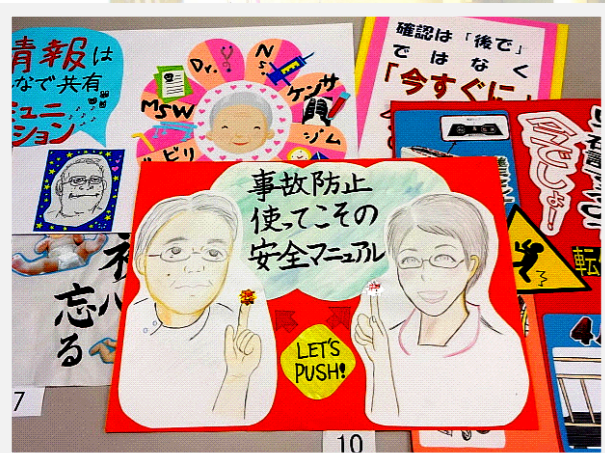 情報は
なで共有
ミュニ
ション
Dr.
Ns.
MSW
ケンサ
ジム
ビリ
確認は「後で」
ではなく
「今すぐに」
事故防止
使ってこその
安全マニュアル
LET'S
PUSH!
今でしょ!
転
忘
る
7
10